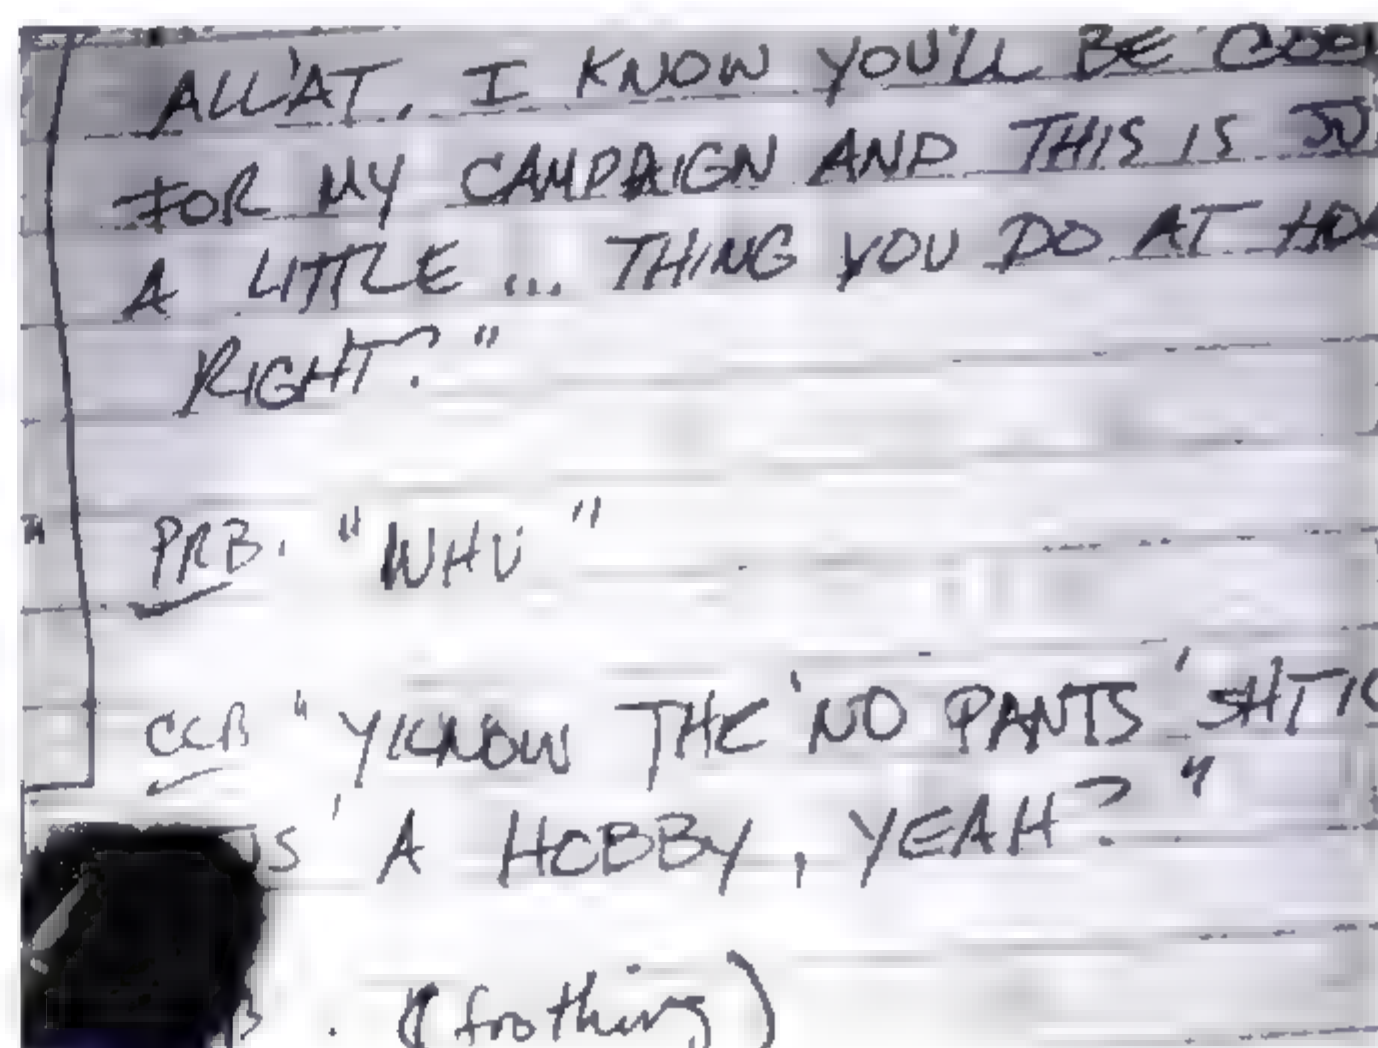 ALL'AT. I KNOW YOU'LL BE
FOR MY CAMPAIGN AND THIS IS
A LITTLE ... THING YOU DO AT
RIGHT?"
PRB. "WHU"
CCB "Y'KNOW THE 'NO PANTS'
A HOBBY, YEAH?"
(frothing)